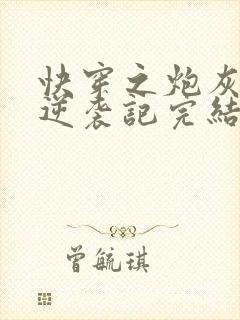 快穿之炮灰
逆袭記完結
曾毓琪